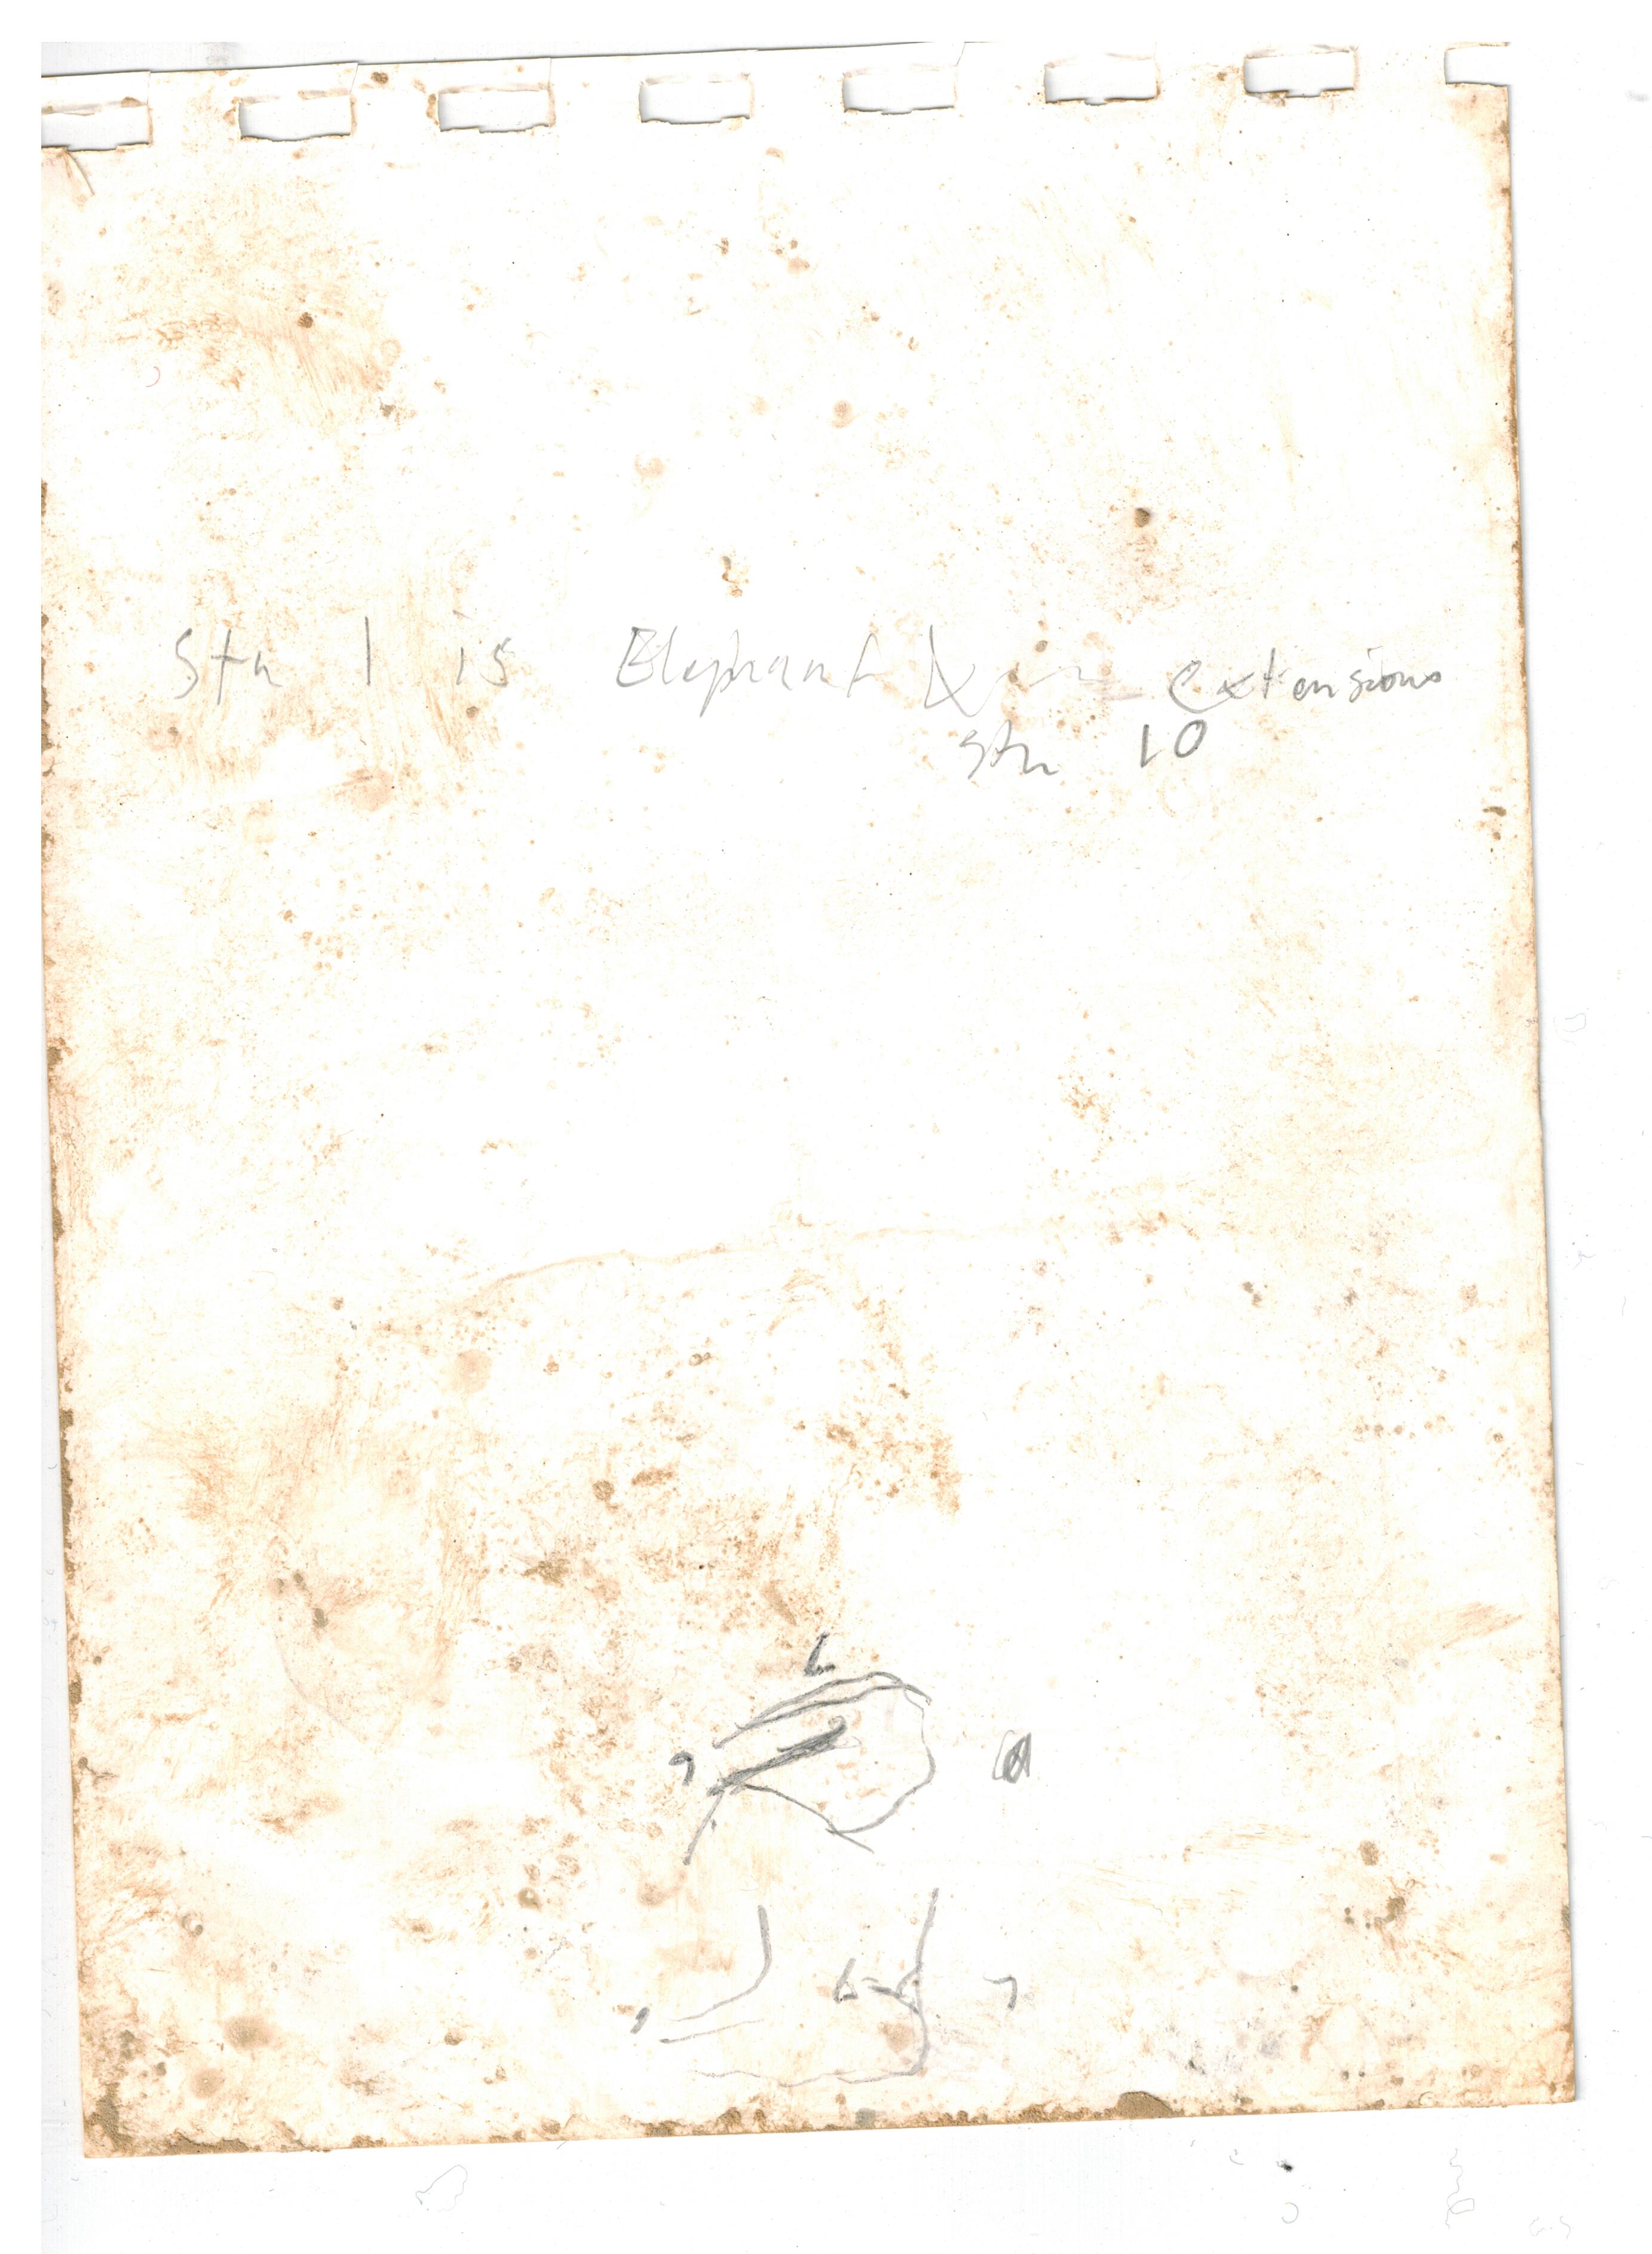 Stn 1 is Elephant extensions
stn 10
6 7